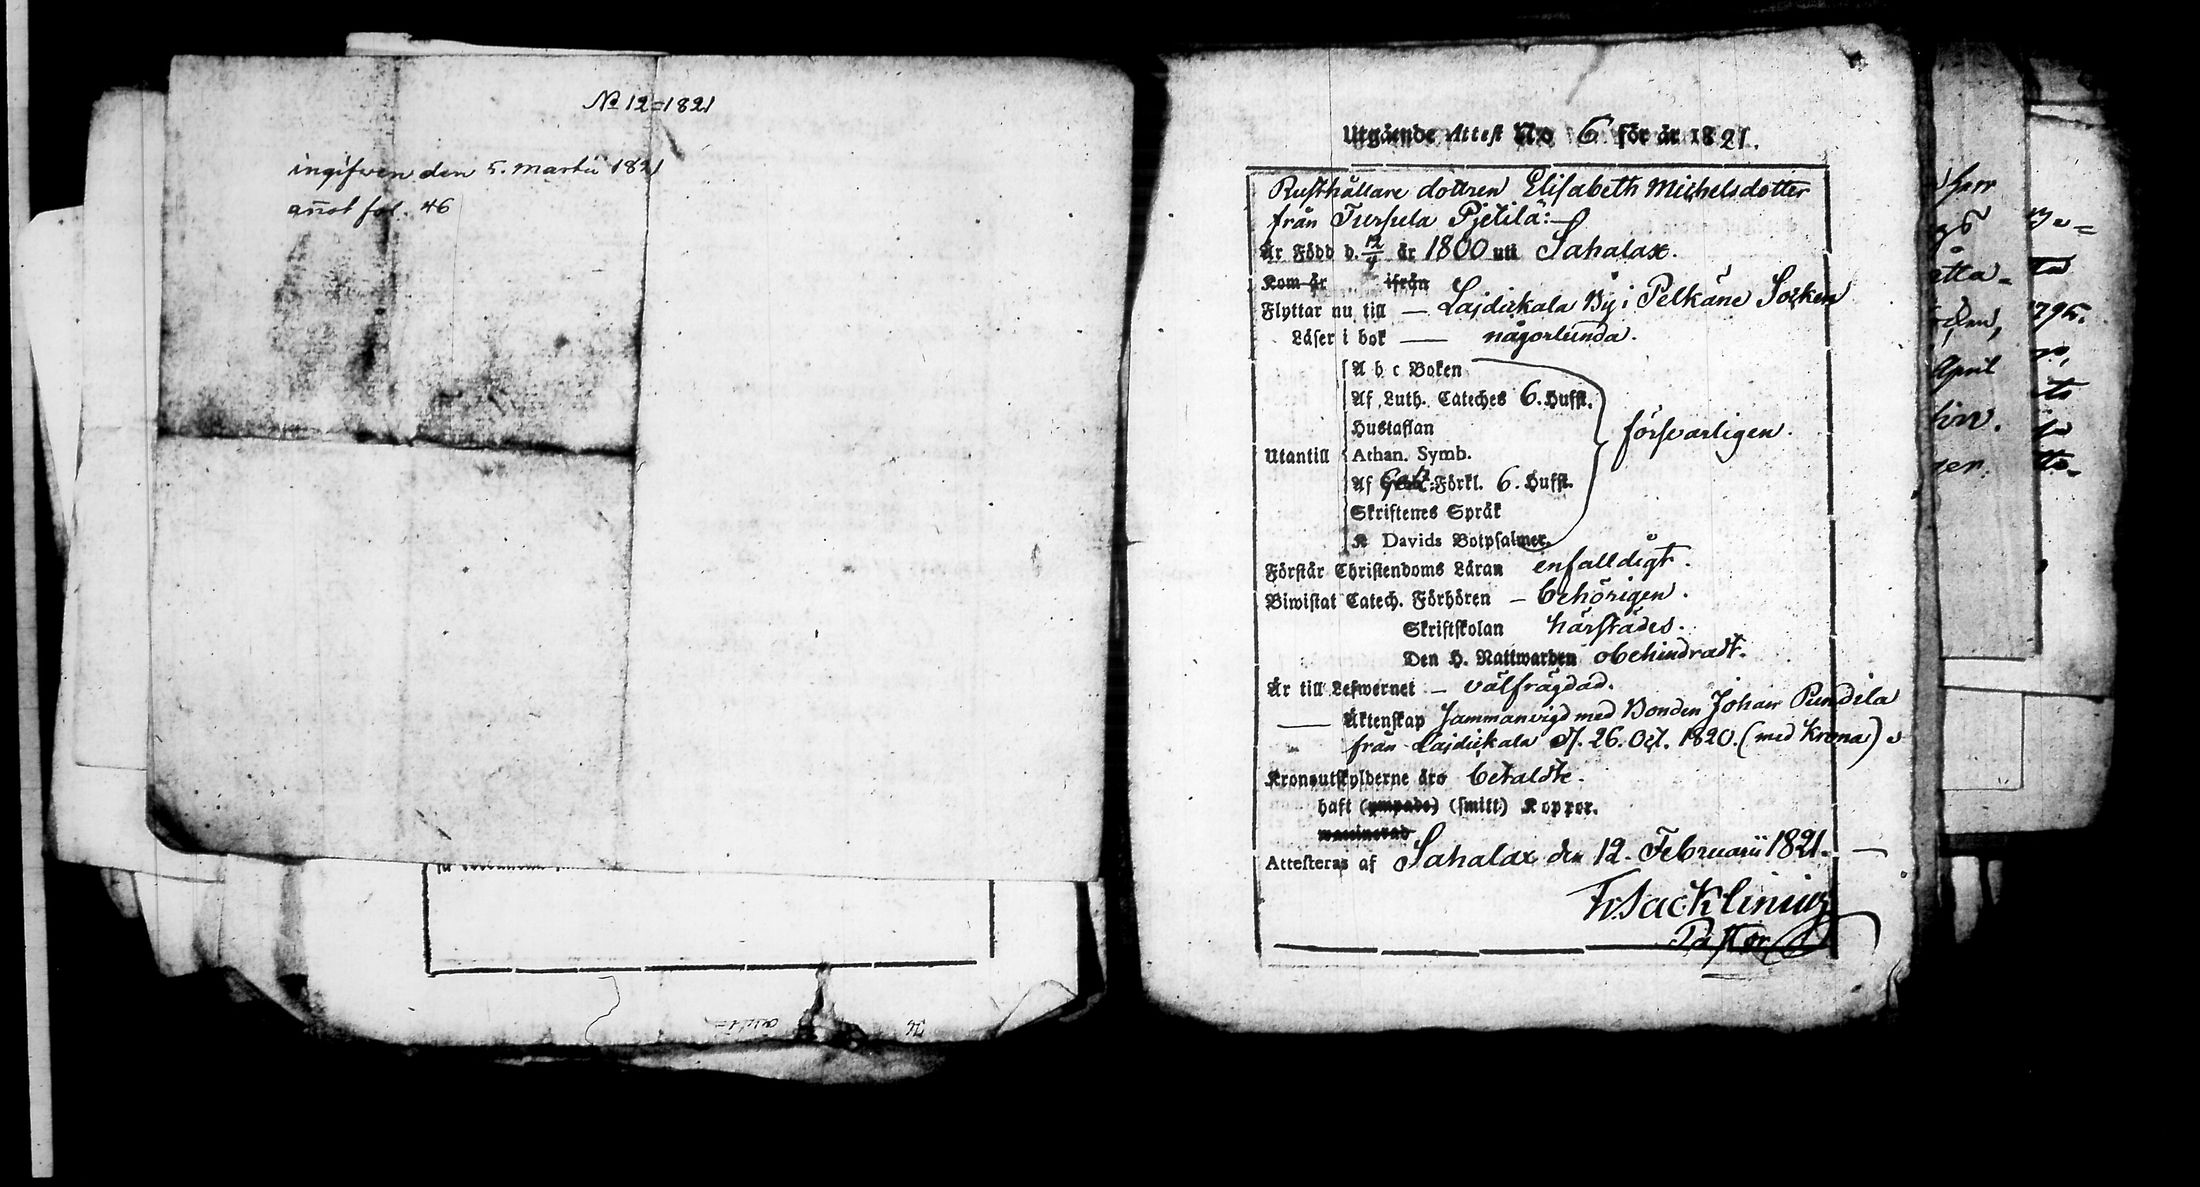 No 12=1821
ingifven den 5. Martii 1821
annot fol. 46
Utgående Attest No 6 för år 1821.
Rusthållare dottren Elisabeth Michelsdotter
från Tursula Pjetilä:
Är Född d. 12/4 år 1800 uti Sahalax.
Kom år ifrån
Flyttar nu till — Lajdickala By i Pelkäne Sockn
Läser i bok — någorlunda.
A b c Boken
Af Luth. Cateches 6. Hufst.
Hustaflan
Utantill Athan. Symb. försvarligen.
Af Förkl. 6. Hufst.
Skriftenes Språk
K Davids Botpsalmer.
Förstår Christendoms Läran enfalldigt.
Biwistat Catech. Förhören — behörigen.
Skriftskolan härstädes.
Den H. Nattwarden obehindradt.
Är till Lefwernet — välfrägdad.
— Äktenskap Sammanvigd med Bonden Johan Pundila
från Lajdickala d. 26. Oct. 1820. (med Krona)
Kronoutskylderne äro betaldte.
haft (ympade) (smitt) Koppor.
waccinerad
Attesteras af Sahalax den 12. Februarii 1821. —
Fr. Sacklinius
Pastor